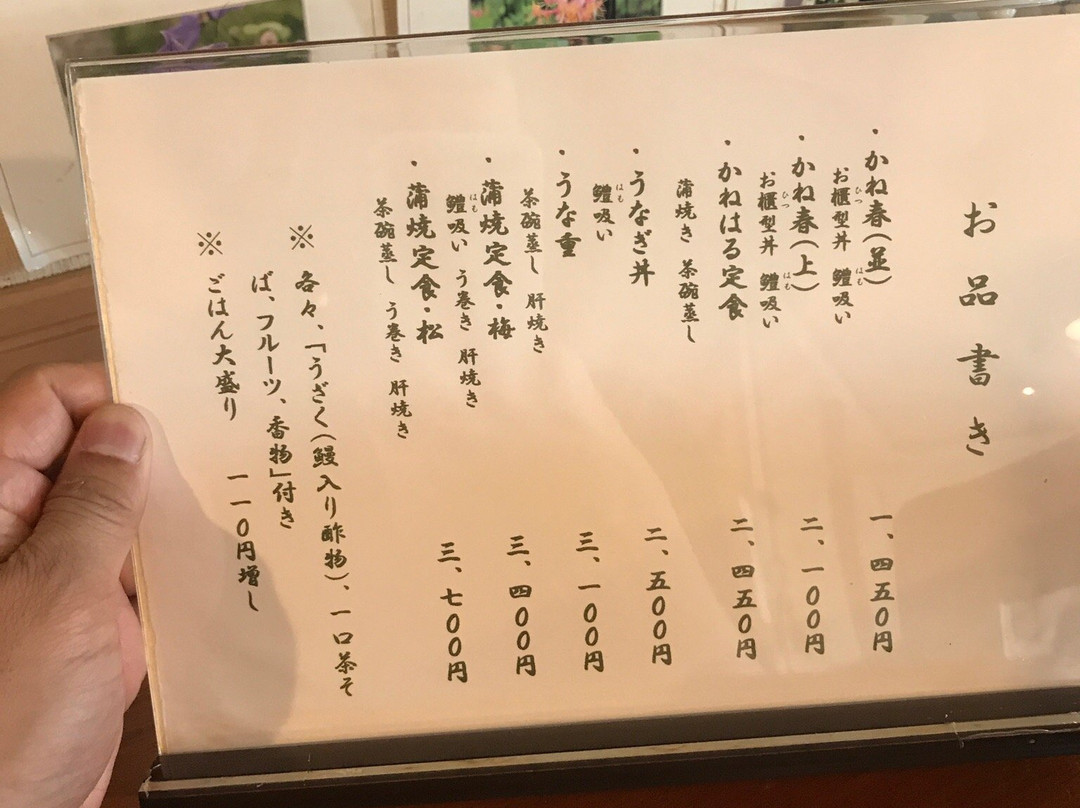 お品書き
・かね春(並) 一、四五0円
お櫃型丼 鱧吸い
・かね春(上) 二、一00円
お櫃型丼 鱧吸い
・かねはる定食 二、四五0円
蒲焼き 茶碗蒸し
・うなぎ丼 二、五00円
鱧吸い
・うな重 三、一00円
茶碗蒸し 肝焼き
・蒲焼定食・梅 三、四00円
鱧吸い う巻き 肝焼き
・蒲焼定食・松 三、七00円
茶碗蒸し う巻き 肝焼き
※ 各々、「うざく(鰻入り酢物)、一口茶そ
ば、フルーツ、香物」付き
※ ごはん大盛り 一一0円増し